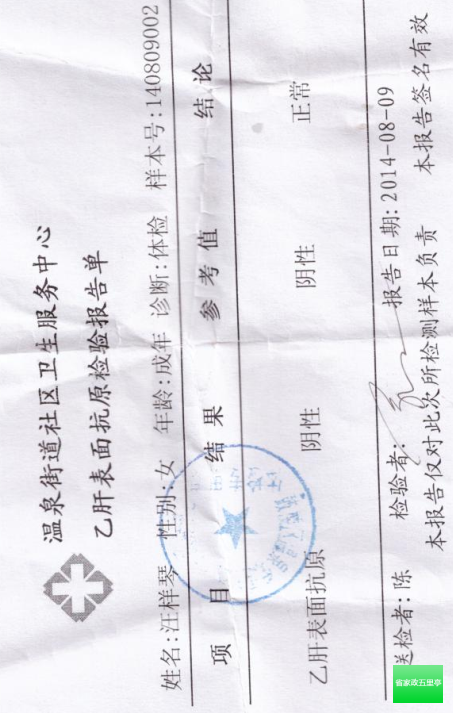 温泉街道社区卫生服务中心
乙肝表面抗原检验报告单
姓名:汪样琴 性别:女 年龄:成年 诊断:体检 样本号:140809002
项 目 结 果 参 考 值 结 论
乙肝表面抗原 阴性 阴性 正常
送检者:陈 检验者: 报告日期:2014-08-09
本报告仅对此次所检测样本负责 本报告签名有效
省家政五里亭